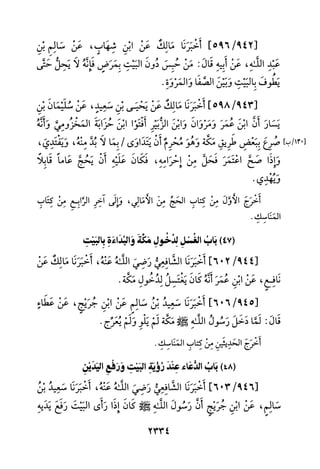 [٥٩٦/٩٤٢] أَخْبَرَنَا مَالِكٌ عَنْ ابْنِ شِهَابٍ، عَنْ سَالِمِ بْنِ
عَبْدِ اللَّهِ، عَنْ أَبِيهِ قَالَ: مَنْ حُبِسَ دُونَ الْبَيْتِ بِمَرَضٍ، فَإِنَّهُ لَا يَحِلُّ حَتَّى
يَطُوفَ بِالْبَيْتِ وَبَيْنَ الصَّفَا وَالْمَرْوَةِ.
[٥٩٨/٩٤٣] أَخْبَرَنَا مَالِكٌ عَنْ يَحْيَى بْنِ سَعِيدٍ، عَنْ سُلَيْمَانَ بْنِ
يَسَارٍ أَنَّ ابْنَ عُمَرَ وَمَرْوَانَ وَابْنَ الزُّبَيْرِ أَفْتَوْا ابْنَ حُزَابَةَ الْمَخْزُومِيَّ وَأَنَّهُ
صُرِعَ بِبَعْضِ طَرِيقِ مَكَّةَ وَهُوَ مُحْرِمٌ أَنْ يَتَدَاوَى / بِمَا لَا بُدَّ مِنْهُ، وَيَفْتَدِيَ، [١٣٠/ب]
وَإِذَا صَحَّ اعْتَمَرَ فَحَلَّ مِنْ إِحْرَامِهِ، فَكَانَ عَلَيْهِ أَنْ يَحُجَّ عَاماً قَابِلاً
وَيُهْدِي.
أَخْرَجَ الأَوَّلَ مِنْ كِتَابِ الحَجِّ مِنَ الأَمَالِي، وَإِلَى آخِرِ الرَّابِعِ مِنْ كِتَابِ
المَنَاسِكِ.
(٤٧) بَابُ الْغُسْلِ لِدُخُولِ مَكَّةَ وَالْبَدَاءَةِ بِالْبَيْتِ
[٦٠٢/٩٤٤] أَخْبَرَنَا الشَّافِعِيُّ رَضِيَ اللَّهُ عَنْهُ، أَخْبَرَنَا مَالِكٌ عَنْ
نَافِعٍ، عَنْ ابْنِ عُمَرَ أَنَّهُ كَانَ يَغْتَسِلُ لِدُخُولِ مَكَّةَ.
[٦٠٦/٩٤٥] أَخْبَرَنَا سَعِيدُ بْنُ سَالِمٍ عَنِ ابْنِ جُرَيْجٍ، عَنْ عَطَاءٍ
قَالَ: لَمَّا دَخَلَ رَسُولُ اللَّهِ ﷺ مَكَّةَ لَمْ يَلْوِ وَلَمْ يُعَرِّجْ.
أَخْرَجَ الحَدِيثَيْنِ مِنْ كِتَابِ المَنَاسِكِ.
(٤٨) بَابُ الدُّعَاءِ عِنْدَ رُؤْيَةِ الْبَيْتِ وَرَفْعِ الْيَدَيْنِ
[٦٠٣/٩٤٦] أَخْبَرَنَا الشَّافِعِيُّ رَضِيَ اللَّهُ عَنْهُ، أَخْبَرَنَا سَعِيدُ بْنُ
سَالِمٍ، عَنْ ابْنِ جُرَيْجٍ أَنَّ رَسُولَ اللَّهِ ﷺ كَانَ إِذَا رَأَى الْبَيْتَ رَفَعَ يَدَيْهِ
٢٣٣٤